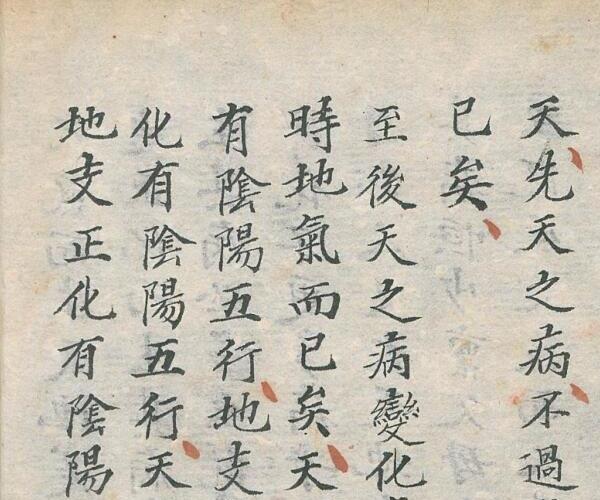 天先天之病不過
已矣
至後天之病變化
時地氣而已矣天
有陰陽五行地支
化有陰陽五行天
地支正化有陰陽